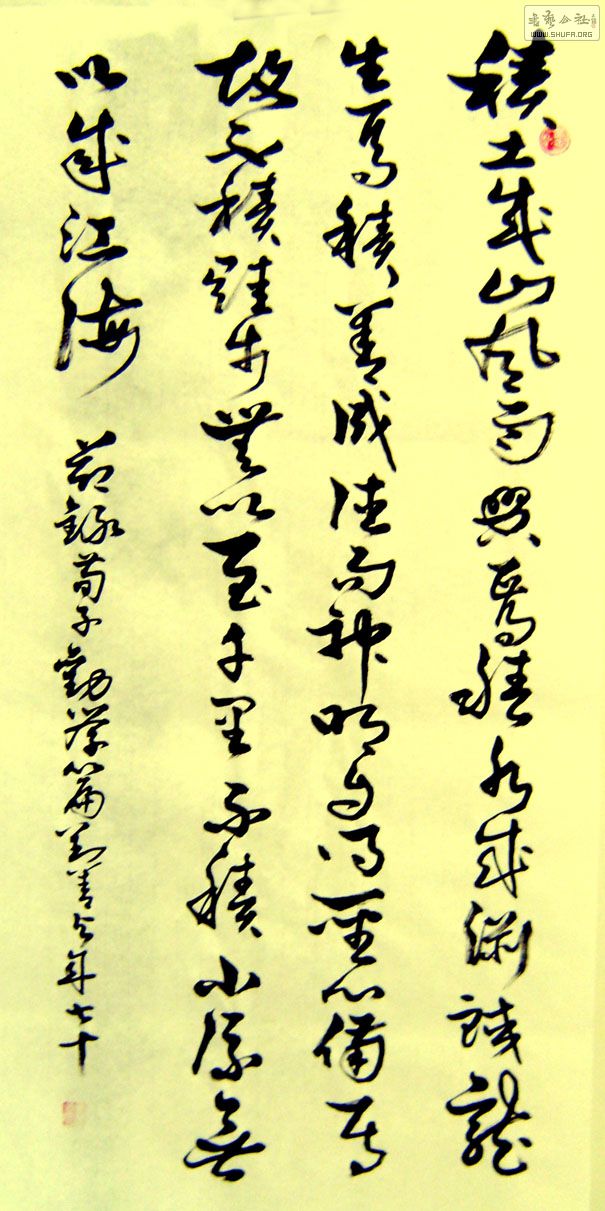 書藝公社
WWW.SHUFA.ORG
積土成山風雨興焉積水成渊蛟龍
生焉積善成德而神明自得聖心備焉
故不積跬步無以至千里不積小流無
以成江海
節錄荀子勸學篇劉善今年七十